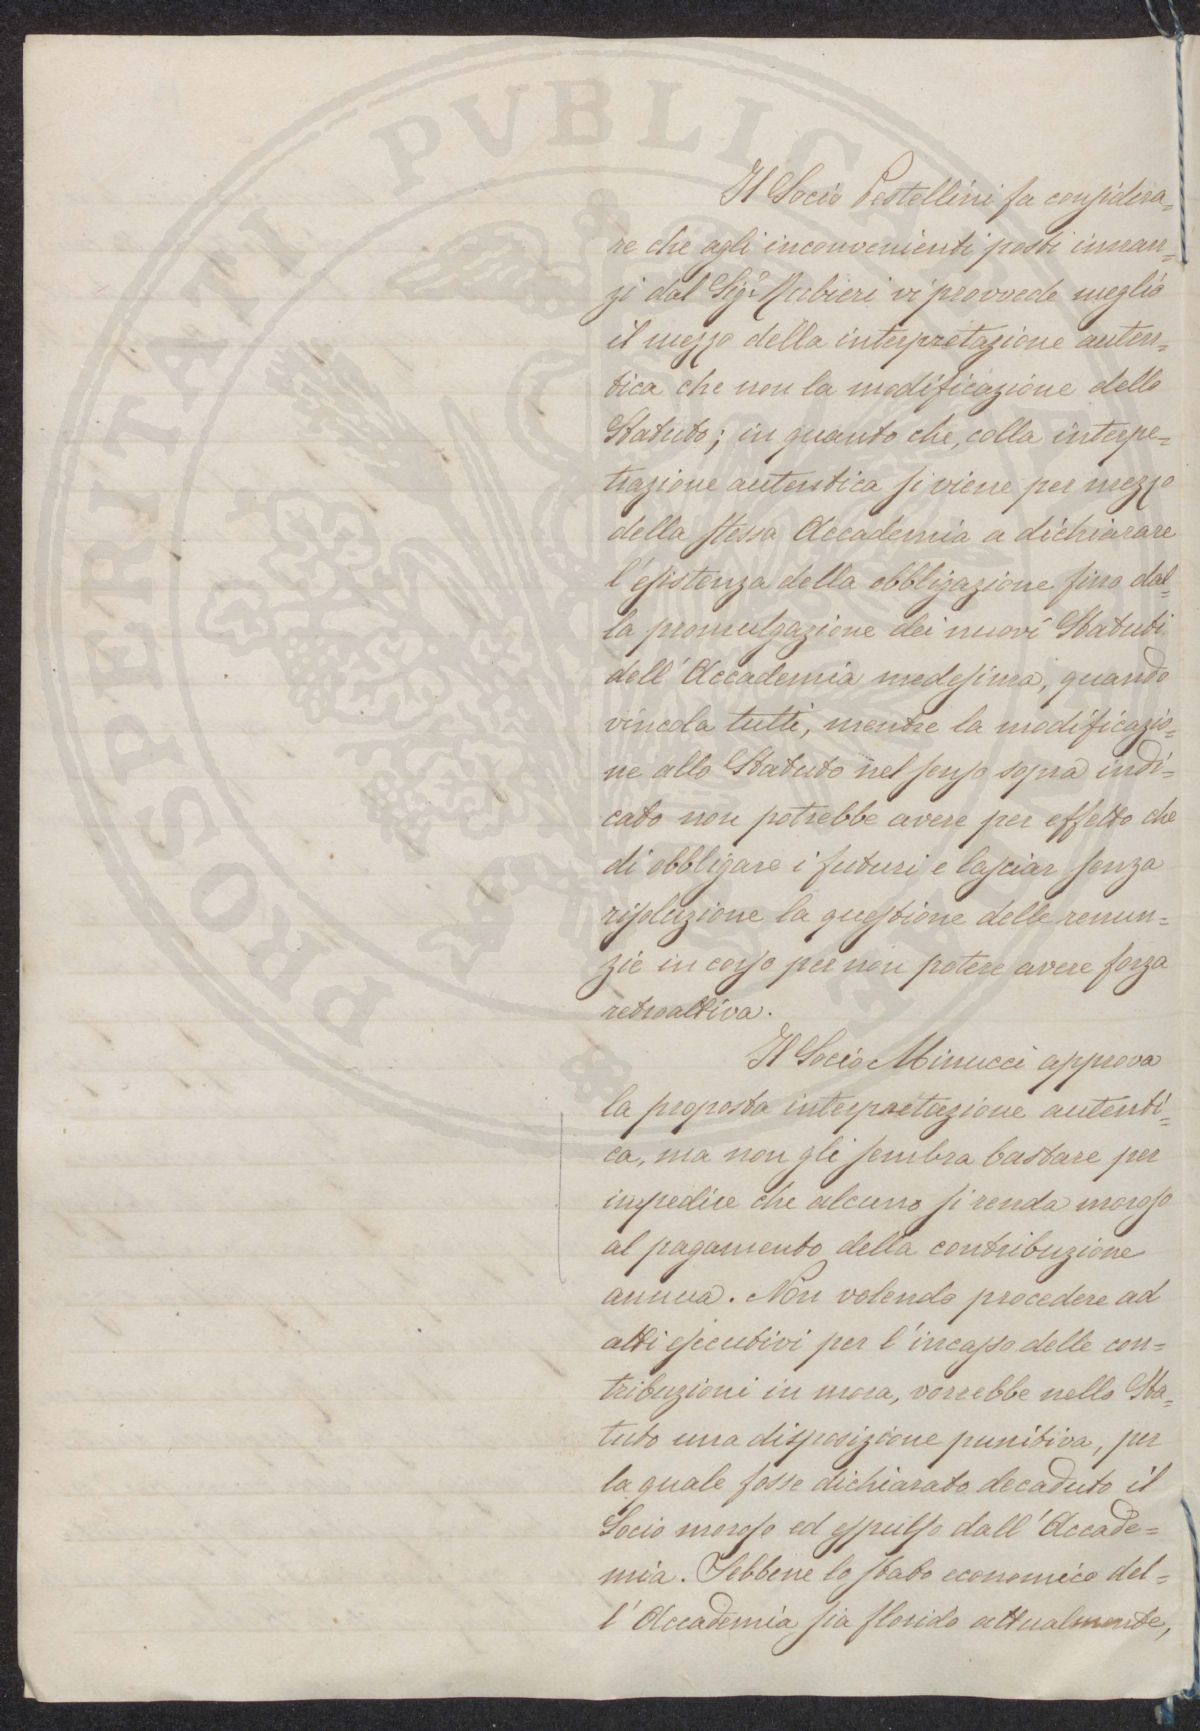 PROSPERITATI PUBLICAE
Il Socio Pestellini fa considera=
re che agli inconvenienti posti innan=
zi dal Sigr. Rubieri vi provvede meglio
il mezzo della interpretazione auten=
tica che non la modificazione dello
Statuto; in quanto che, colla interpe=
trazione autentica si viene per mezzo
della stessa Accademia a dichiarare
l'esistenza della obbligazione fino dal=
la promulgazione dei nuovi Statuti
dell'Accademia medesima, quando
vincola tutti, mentre la modificazio=
ne allo Statuto nel senso sopra indi=
cato non potrebbe avere per effetto che
di obbligare i futuri e lasciar senza
risoluzione la questione delle renun=
zie in corso per non potere avere forza
retroattiva.
Il Socio Minucci approva
la proposta interpretazione autenti=
ca, ma non gli sembra bastare per
impedire che alcuno si renda moroso
al pagamento della contribuzione
annua. Non volendo procedere ad
atti esecutivi per l'incasso delle con=
tribuzioni in mora, vorrebbe nello Sta=
tuto una disposizione punitiva, per
la quale fosse dichiarato decaduto il
Socio moroso ed espulso dall'Accade=
mia. Sebbene lo stato economico del=
l'Accademia sia florido attualmente,